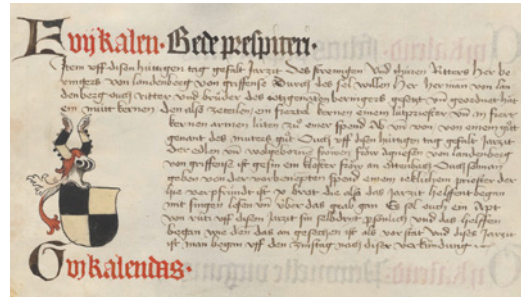 E vij kalen. Bede prespiteri.
Item vff disen hüttigen tag gefalt Jarzit des strengen vnd thüren Ritters her be
ringers von landenberg von griffense durch des sel willen her herman von lan
denberg ouch ritter vnd brüder des obgenanten beringers gesetzt vnd geordnet hat
ein mütt kernen den also zeteilen ein fiertel kernen einem lütpriester vnd iij fiert
kernen armen lüten zü einer spend vnd von einem güt
genant des muters güt Ouch vff disen hüttigen tag gefalt Jarzit
der edlen vnd wolgeborne frow agnesen von landenberg
von griffense ist gesin ein kloster frow an Ouch sol man
geben von der vorbenopten spend einem ieklichem priester der
hie verpfründt ist v brot die also das Jarzit helffent began
mit singen lesen vnd vber das grab gan Es sol ouch ein Apt
von rüti vff disem Jarzit sin selbdrit psönlich vnd das helffen
began wie den das an gesechen ist als vor stat vnd dises Jarzit
ist man began vff den zinstag nach diser verkündung
G vj kalendas.